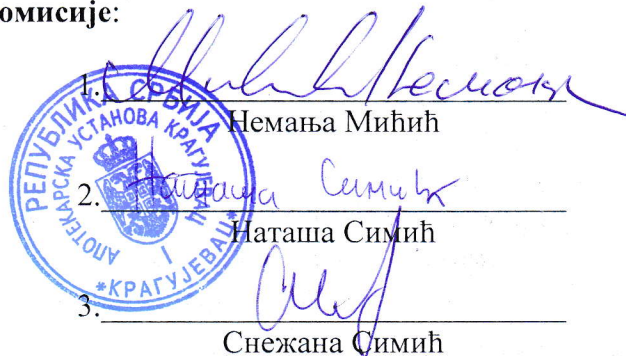 омисије:
1.
Немања Мићић
2. Наташа Симић
Наташа Симић
3.
Снежана Симић
РЕПУБЛИКА СРБИЈА
АПОТЕКАРСКА УСТАНОВА КРАГУЈЕВАЦ
I
*КРАГУЈЕВАЦ*